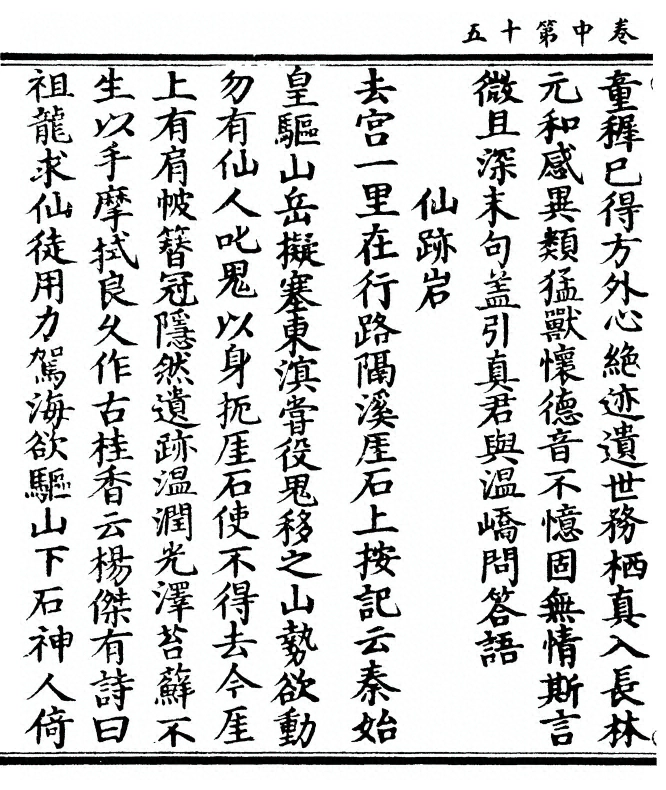 卷中第十五
童穉已得方外心絶迹遺世務栖真入長林
元和感異類猛獸懷德音不憶固無情斯言
微且深末句盖引真君與温嶠問答語
仙跡岩
去宫一里在行路隔溪厓石上按記云秦始
皇驅山岳擬塞東滇嘗役鬼移之山勢欲動
勿有仙人叱鬼以身扼厓石使不得去今厓
上有肩帔簪冠隱然遺跡温潤光澤苔蘚不
生以手摩拭良久作古桂香云楊傑有詩曰
祖龍求仙徒用力駕海欲驅山下石神人倚